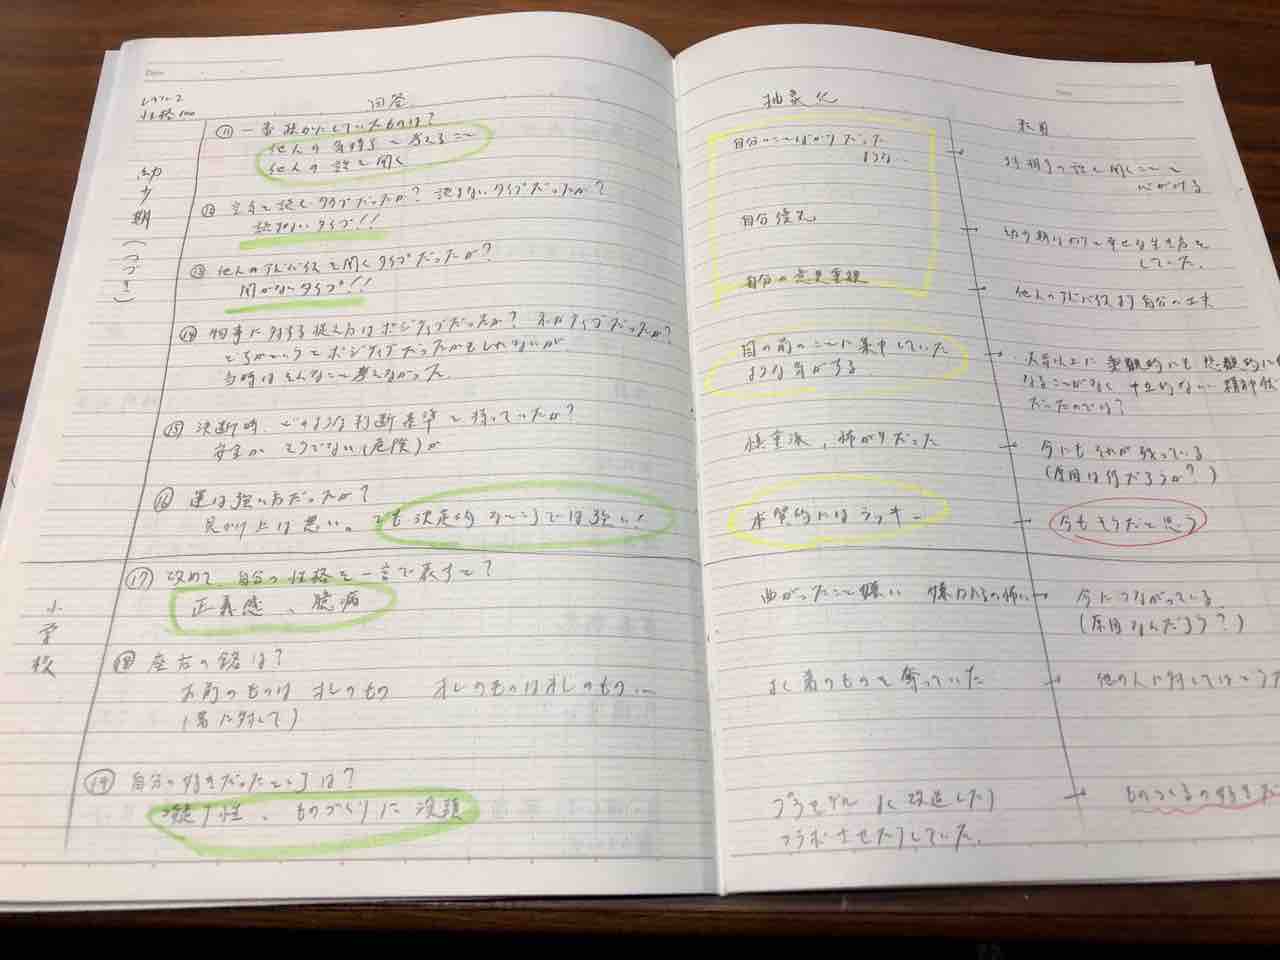 Date
レベル2
性格100
回答
幼少期(つづき)
⑪ 一番疎かにしていたものは?
他人の気持ちを考えること
他人の話を聞く
⑫ 空気を読むタイプだったか? 読まないタイプだったか?
読めないタイプ!!
⑬ 他人のアドバイスを聞くタイプだったか?
聞かないタイプ!!
⑭ 物事に対する捉え方はポジティブだったか? ネガティブだったか?
どちらかというとポジティブだったかもしれないが
当時はそんなこと考えなかった
⑮ 決断時、どのような判断基準を持っていたか?
安全か そうでない(危険)か
⑯ 運は強い方だったか?
見かけ上は悪い。でも決定的なところでは強い!
小学校
⑰ 改めて、自分の性格を一言で表すと?
正義感、臆病
⑱ 座右の銘は?
お前のものはオレのもの オレのものはオレのもの…
(弟に対して)
⑲ 自分の好きだったところは?
凝り性、ものづくりに没頭
抽象化
自分のことばかりだった
ような…
自分優先
自分の意見重視
目の前のことに集中していた
ような気がする
慎重派、怖がりだった
本質的にはラッキー
曲がったこと嫌い 嫌われるの怖い
よく弟のものを奪っていた
プラモデルを改造したり
コラボさせたりしていた。
Date
転用
→ 相手の話を聞くことを
心がける
→ 幼少期なりに幸せな生き方を
していた。
→ 他人のアドバイスより自分の工夫
→ 必要以上に楽観的にも悲観的に
なることがなく 中立的な 精神状
だったのでは?
→ 今にもそれが残っている
(原因は何だろうか?)
→ 今もそうだと思う
→ 今につながっている
(原因なんだろう?)
→ 他の人に対してはどう
→ ものつくるの好きだ